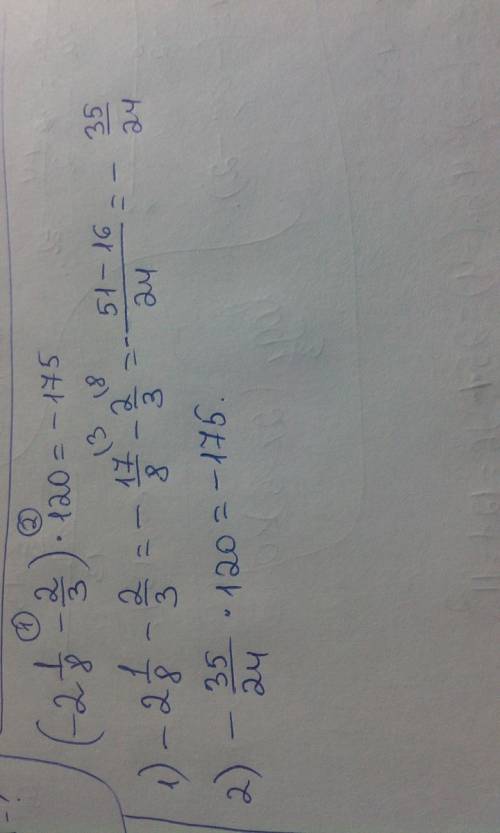 (-2 1/8 - 2/3) · 120 = -175
① ②
1) - 2 1/8 - 2/3 = - 17/8 - 2/3 = - (51 - 16)/24 = - 35/24
(3 (8
2) - 35/24 · 120 = -175.